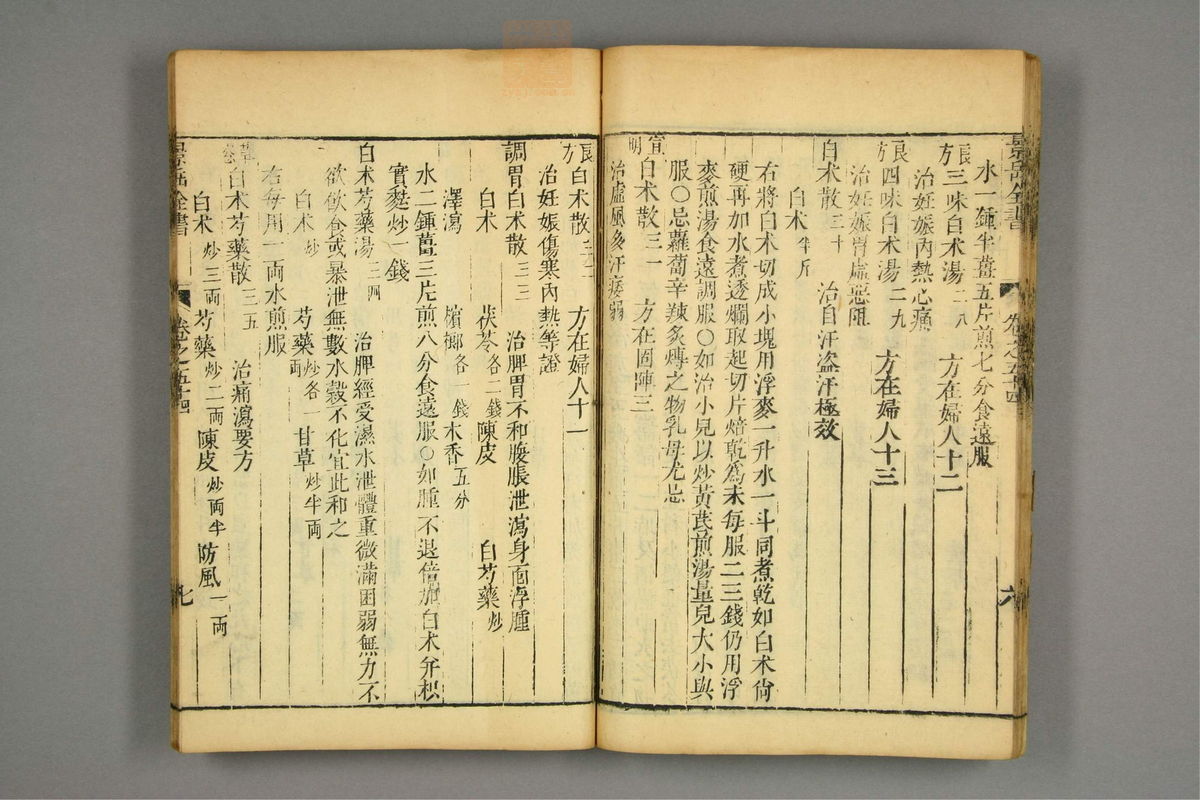 景岳全書 卷之五十四 六
水一鍾半薑五片煎七分食遠服
良方三味白术湯二八 方在婦人十二
治妊娠內熱心痛
良方四味白术湯二九 方在婦人十三
治妊娠胃虛惡阻
白术散三十 治自汗盗汗極效
白术半斤
右將白术切成小塊用浮麥一升水一斗同煮乾如白术尚
硬再加水煮透爛取起切片焙乾為末每服二三錢仍用浮
麥煎湯食遠調服○如治小兒以炒黃芪煎湯量兒大小與
服○忌蘿蔔辛辣炙煿之物乳母尤忌
宣明白术散三一 方在固陣三
治虛風多汗痿弱
良方白术散三二 方在婦人十一
治妊娠傷寒內熱等證
調胃白术散三三 治脾胃不和腹脹泄瀉身面浮腫
白术 茯苓各二錢 陳皮 白芍藥炒
澤瀉 檳榔各一錢 木香五分
水二鍾薑三片煎八分食遠服○如腫不退倍加白术并枳
實麩炒一錢
白术芍藥湯三四 治脾經受濕水泄體重微滿困弱無力不
欲飲食或暴泄無數水穀不化宜此和之
白术炒 芍藥炒各一両 甘草炒半両
右每用一両水煎服
草窓白术芍藥散三五 治痛瀉要方
白术炒三両 芍藥炒二両 陳皮炒両半 防風一両
景岳全書 卷之五十四 七